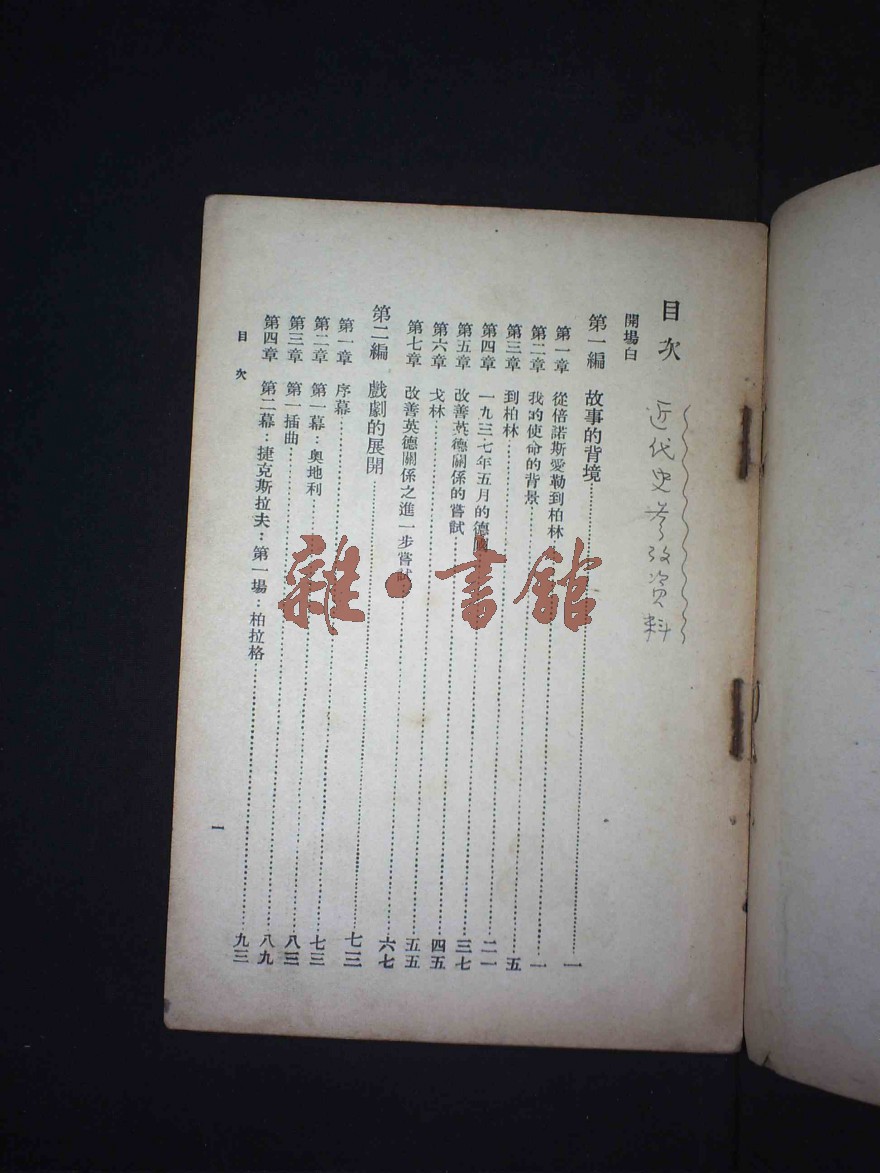 近代史参攷資料
目次
開場白
第一編 故事的背境……一
第一章 從倍諾斯愛勒到柏林……一
第二章 我的使命的背景……五
第三章 到柏林……二一
第四章 一九三七年五月的德國……三七
第五章 改善英德關係的嘗試……四五
第六章 戈林……五五
第七章 改善英德關係之進一步嘗試……六七
第二編 戲劇的展開……七三
第一章 序幕……七三
第二章 第一幕：奧地利……八三
第三章 第一插曲……八九
第四章 第二幕：捷克斯拉夫：第一場：柏拉格……九三
目次
一
雜·書館